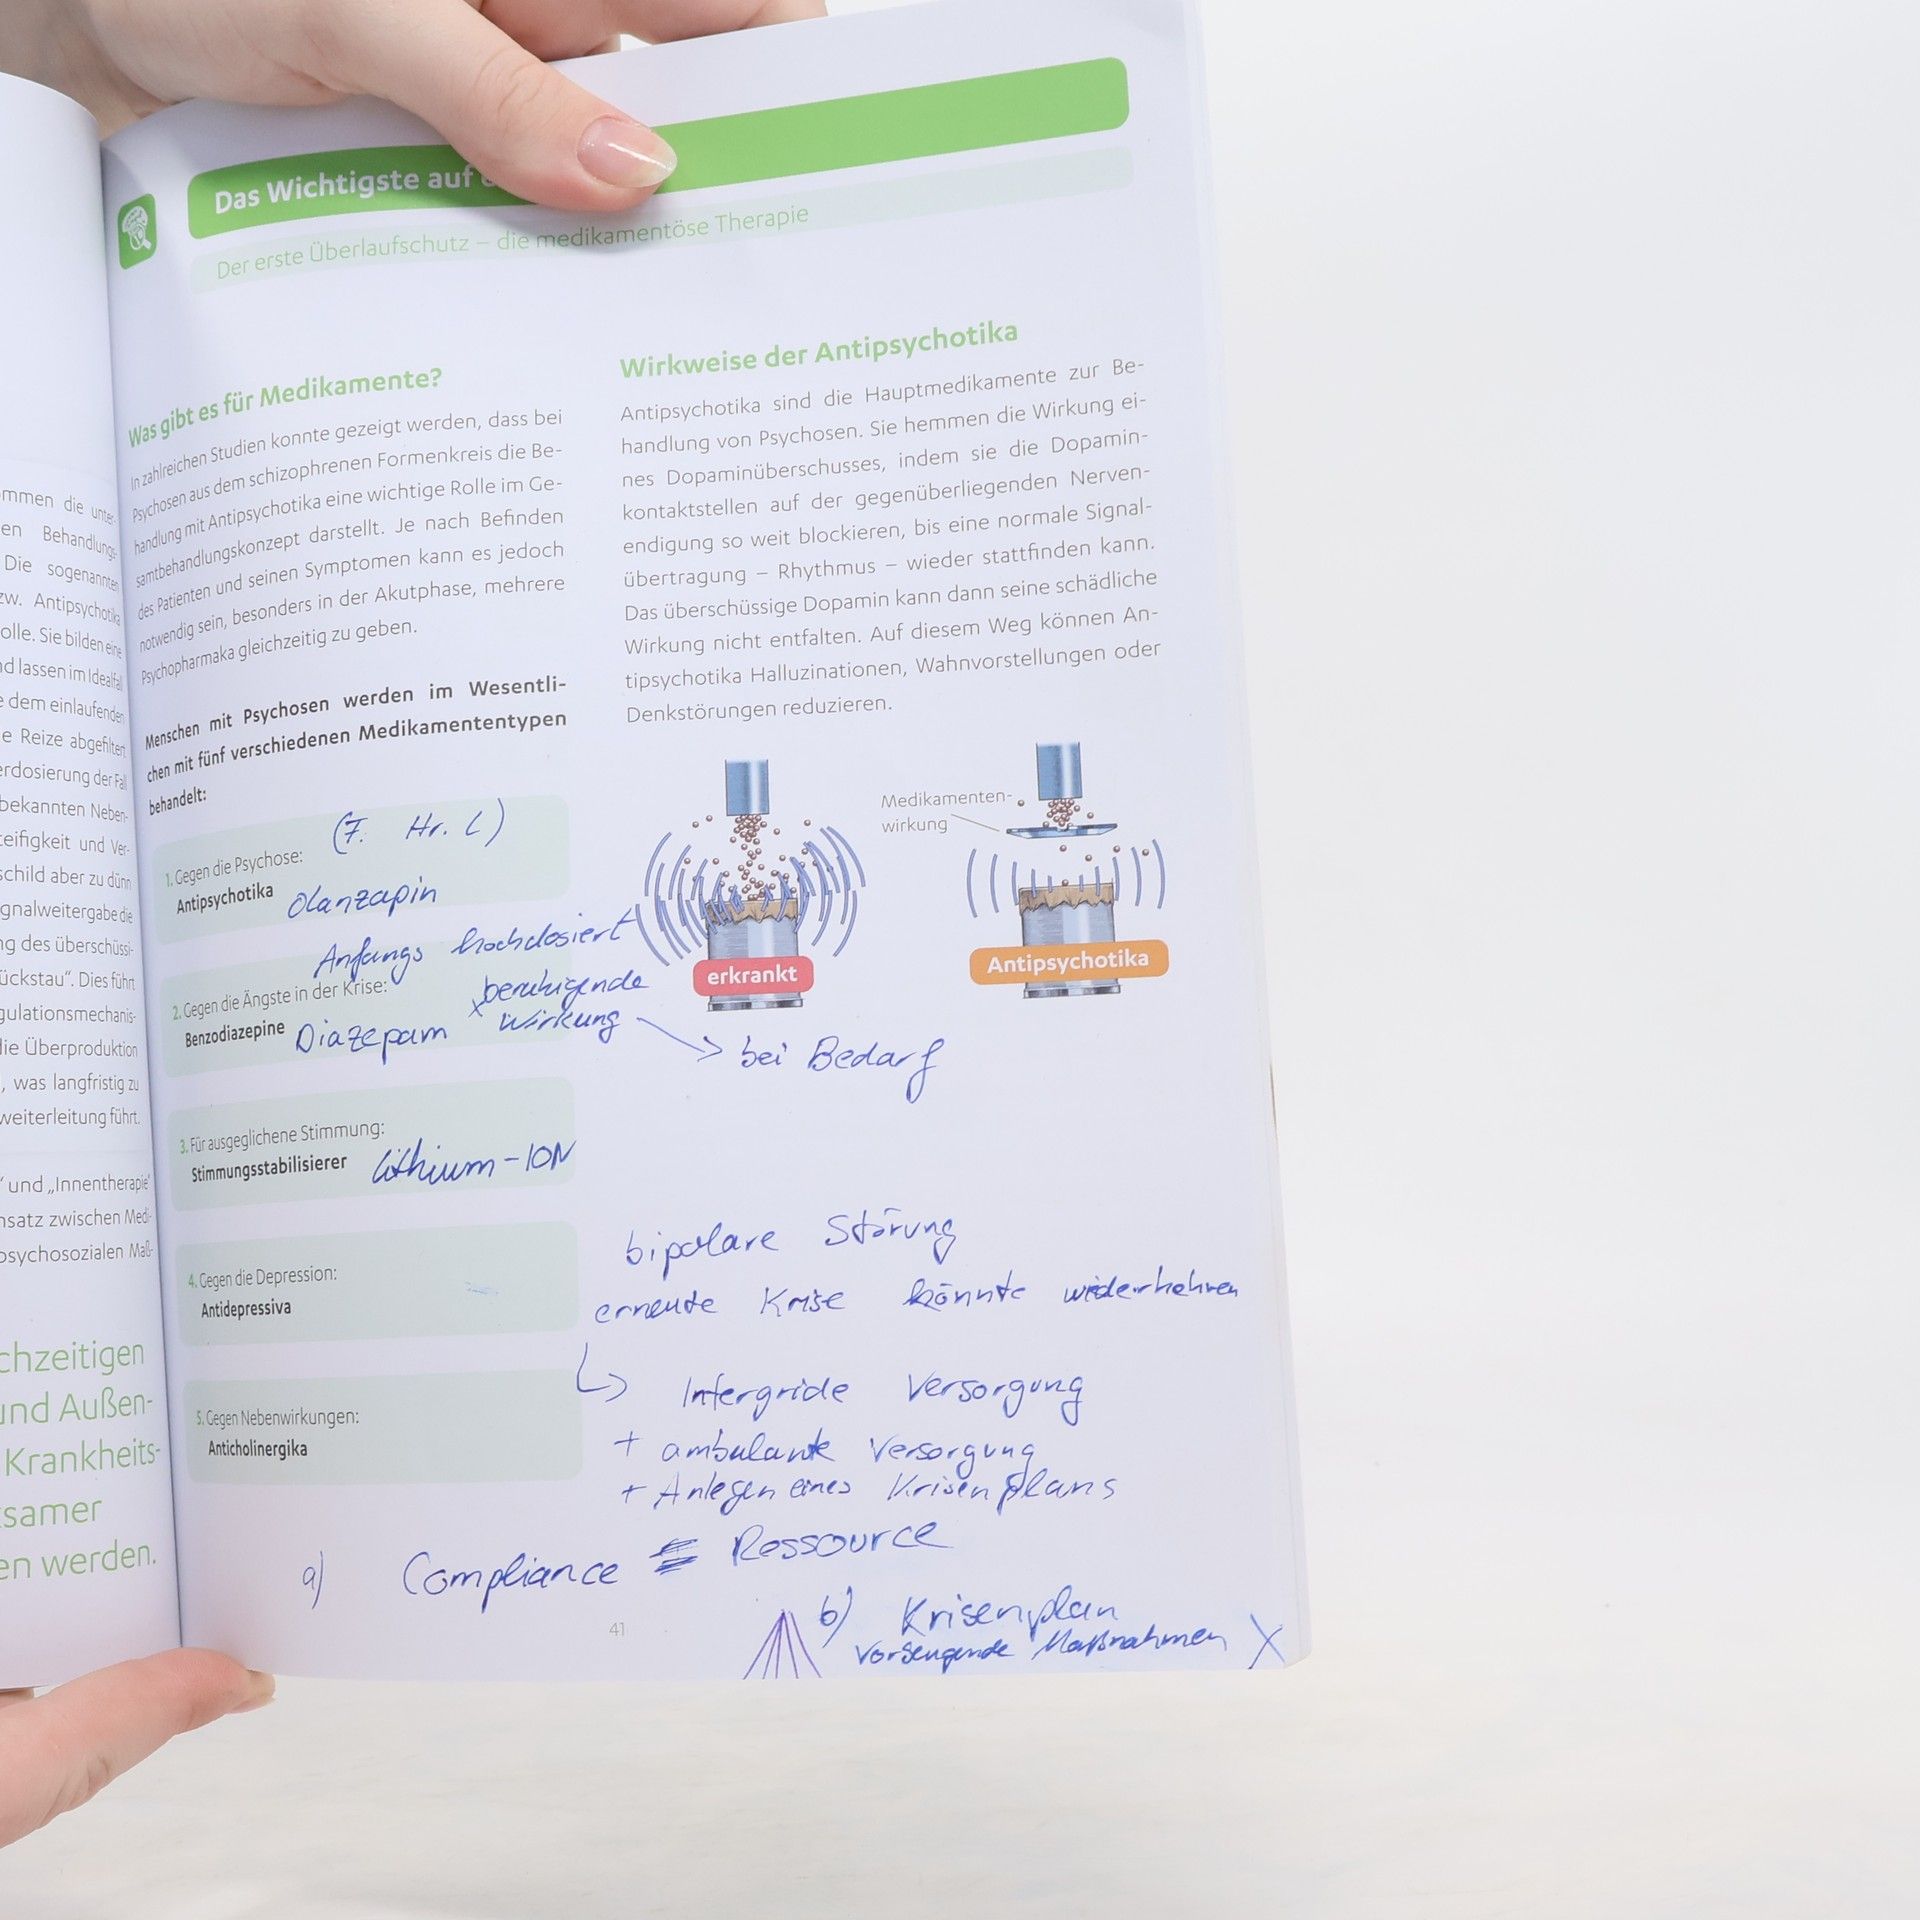 Das Wichtigste auf
Der erste Überlaufschutz – die medikamentöse Therapie
Was gibt es für Medikamente?
In zahlreichen Studien konnte gezeigt werden, dass bei
Psychosen aus dem schizophrenen Formenkreis die Be-
handlung mit Antipsychotika eine wichtige Rolle im Ge-
samtbehandlungskonzept darstellt. Je nach Befinden
des Patienten und seinen Symptomen kann es jedoch
notwendig sein, besonders in der Akutphase, mehrere
Psychopharmaka gleichzeitig zu geben.
Menschen mit Psychosen werden im Wesentli-
chen mit fünf verschiedenen Medikamententypen
behandelt:
(F. Hr. L)
1. Gegen die Psychose:
Antipsychotika Olanzapin
Anfangs hochdosiert
2. Gegen die Ängste in der Krise:
x beruhigende
Benzodiazepine Diazepam Wirkung
bei Bedarf
3. Für ausgeglichene Stimmung:
Stimmungsstabilisierer Lithium-ION
4. Gegen die Depression:
Antidepressiva
5. Gegen Nebenwirkungen:
Anticholinergika
Wirkweise der Antipsychotika
Antipsychotika sind die Hauptmedikamente zur Be-
handlung von Psychosen. Sie hemmen die Wirkung ei-
nes Dopaminüberschusses, indem sie die Dopamin-
kontaktstellen auf der gegenüberliegenden Nerven-
endigung so weit blockieren, bis eine normale Signal-
übertragung – Rhythmus – wieder stattfinden kann.
Das überschüssige Dopamin kann dann seine schädliche
Wirkung nicht entfalten. Auf diesem Weg können An-
tipsychotika Halluzinationen, Wahnvorstellungen oder
Denkstörungen reduzieren.
Medikamenten-
wirkung
erkrankt
Antipsychotika
bipolare Störung
erneute Krise könnte
Intergride Versorgung
+ ambulante Versorgung
+ Anlegen eines Krisenplans
a) Compliance = Ressource
b) Krisenplan
Maßnahmen X
41
ommen die unter-
en Behandlungs-
Die sogenannten
zw. Antipsychotika
olle. Sie bilden eine
nd lassen im Idealfall
e dem einlaufenden
e Reize abgefiltert
erdosierung der Fall
bekannten Neben-
teifigkeit und Ver-
schild aber zu dünn
gnalweitergabe die
ng des überschüssi-
ückstau“. Dies führt
gulationsmechanis-
die Überproduktion
, was langfristig zu
weiterleitung führt.
“ und „Innentherapie“
nsatz zwischen Medi-
psychosozialen Maß-
chzeitigen
und Außen-
Krankheits-
samer
en werden.